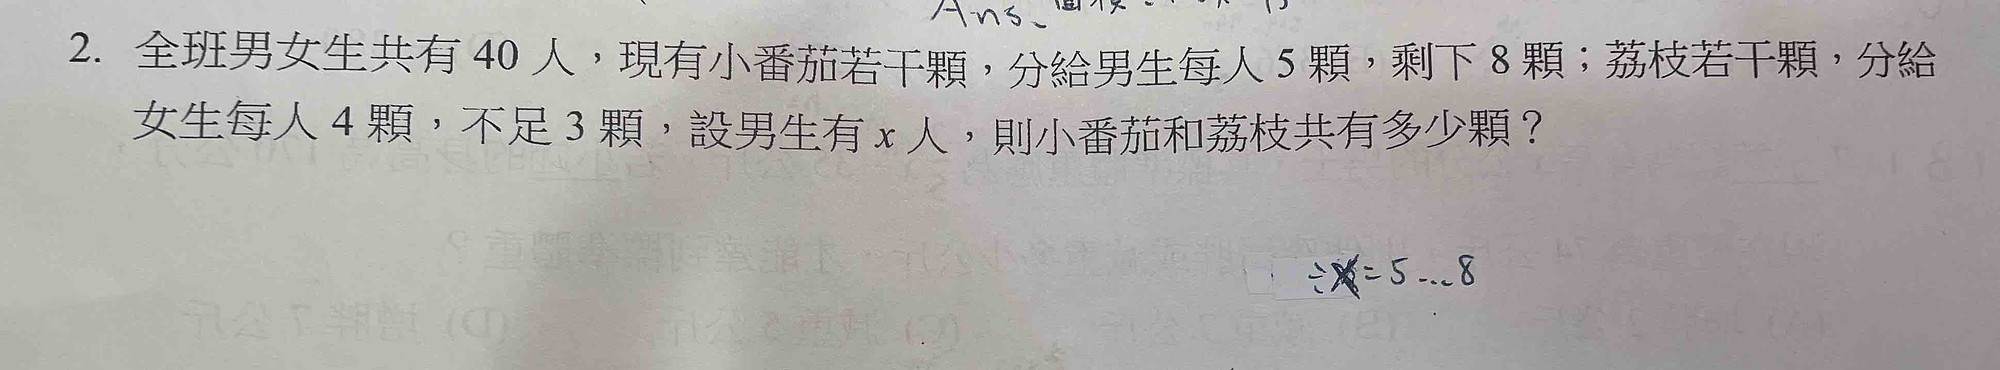 Ans、
2. 全班男女生共有 40 人，現有小番茄若干顆，分給男生每人 5 顆，剩下 8 顆；荔枝若干顆，分給
女生每人 4 顆，不足 3 顆，設男生有 x 人，則小番茄和荔枝共有多少顆？
=5...8